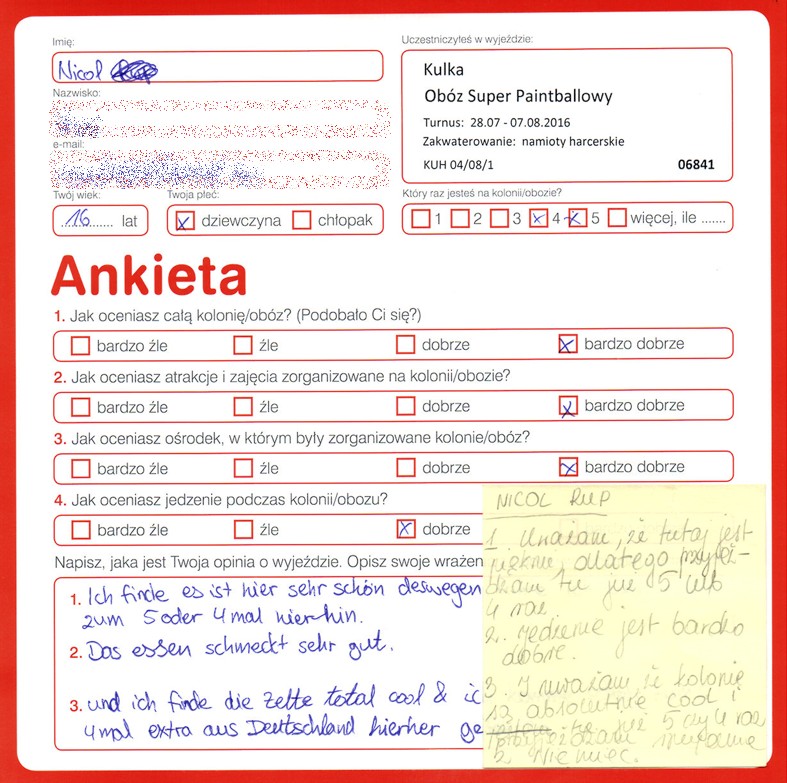 Imię:
Nicol
Uczestniczyłeś w wyjeździe:
Kulka
Obóz Super Paintballowy
Turnus: 28.07 - 07.08.2016
Zakwaterowanie: namioty harcerskie
KUH 04/08/1 06841
Nazwisko:
e-mail:
Twój wiek:
16 lat
Twoja płeć:
dziewczyna chłopak
Który raz jesteś na kolonii/obozie?
1 2 3 4 5 więcej, ile .......
Ankieta
1. Jak oceniasz całą kolonię/obóz? (Podobało Ci się?)
bardzo źle źle dobrze bardzo dobrze
2. Jak oceniasz atrakcje i zajęcia zorganizowane na kolonii/obozie?
bardzo źle źle dobrze bardzo dobrze
3. Jak oceniasz ośrodek, w którym były zorganizowane kolonie/obóz?
bardzo źle źle dobrze bardzo dobrze
4. Jak oceniasz jedzenie podczas kolonii/obozu?
bardzo źle źle dobrze
Napisz, jaka jest Twoja opinia o wyjeździe. Opisz swoje wrażen
1. Ich finde es ist hier sehr schön deswegen
zum 5 oder 4 mal hierhin.
2. Das essen schmeckt sehr gut.
3. und ich finde die Zelte total cool & ic
4mal extra aus Deutschland hierher ge
NICOL RUP
1. Uważam, że tutaj jest
pięknie, dlatego przyjeż-
dżam tu już 5 lub
4 raz.
2. Jedzenie jest bardzo
dobre.
3. I uważam, że kolonie
są absolutnie cool i
tu już 5 czy 4 raz
przyjeżdżam specjalnie
z Niemiec.